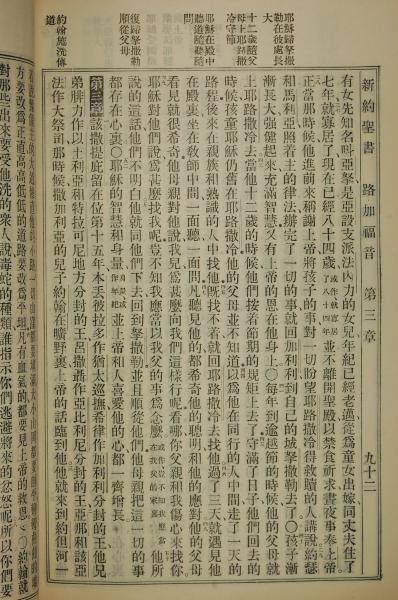 新約聖書 路加福音 第三章 九十二
耶穌歸拏撒
勒在彼處長
大
十二歲隨父
母上耶路撒
冷守節
耶穌在殿中
聽道隨聽隨
問
復歸拏撒勒
順從父母
約翰施洗傳
道
有女先知名叫亞拏是亞設支派法內力的女兒年紀已經老邁從爲童女出嫁同丈夫住了
七年就寡居了現在已經八十四歲或作就寡居了八十四年並不離開聖殿以禁食祈求晝夜事奉上帝
正當那時候他進前來稱謝上帝將孩子的事對一切盼望耶路撒冷得救贖的人講說約瑟
和馬利亞照着主的律法辦完了一切的事就回加利利到自己的城拏撒勒去了○孩子漸
漸長大强健起來充滿智慧又有上帝的恩在他身上○每年到逾越節的時候他的父母就
上耶路撒冷去當他十二歲的時候他們按着節期的規矩上去了守滿了日子他們回去的
時候孩童耶穌仍舊在耶路撒冷他的父母並不知道以爲他在同行的人中間走了一天的
路程後來在親族和熟識的人中找他旣找不着就回耶路撒冷去找他過了三天就遇見他
在殿裏坐在教師中間一面聽一面問凡聽見他的都希奇他的聰明和他的應對他的父母
看見就很希奇他母親對他說我兒爲甚麽向我們這樣行呢看哪你父親和我傷心來找你
耶穌對他們說爲甚麽找我呢豈不知我應當以我父的事爲念麽或作豈不知我應當在我父的家裏麽他所
說的這話他們不明白他就同他們下去回到拏撒勒並且順從他們他母親把這一切的事
都存在心裏○耶穌的智慧和身量身量或作年紀並上帝和人喜愛他的心都一齊增長
第三章該撒提庇留在位第十五年本丟彼拉多作猶太巡撫希律作加利利分封的王他兄
弟腓力作以土利亞和特拉可尼地方分封的王呂撒聶作亞比利尼分封的王亞那和該亞
法作大祭司那時候撒加利亞的兒子約翰在曠野裏上帝的話臨到他他就來到約但河一
改爲正直高高低低的道路要改爲平坦凡有血氣的都要見上帝的救恩○約翰就
對那些出來要受他洗的衆人說毒蛇的種類誰指示你們逃避將來的忿怒呢所以你們要